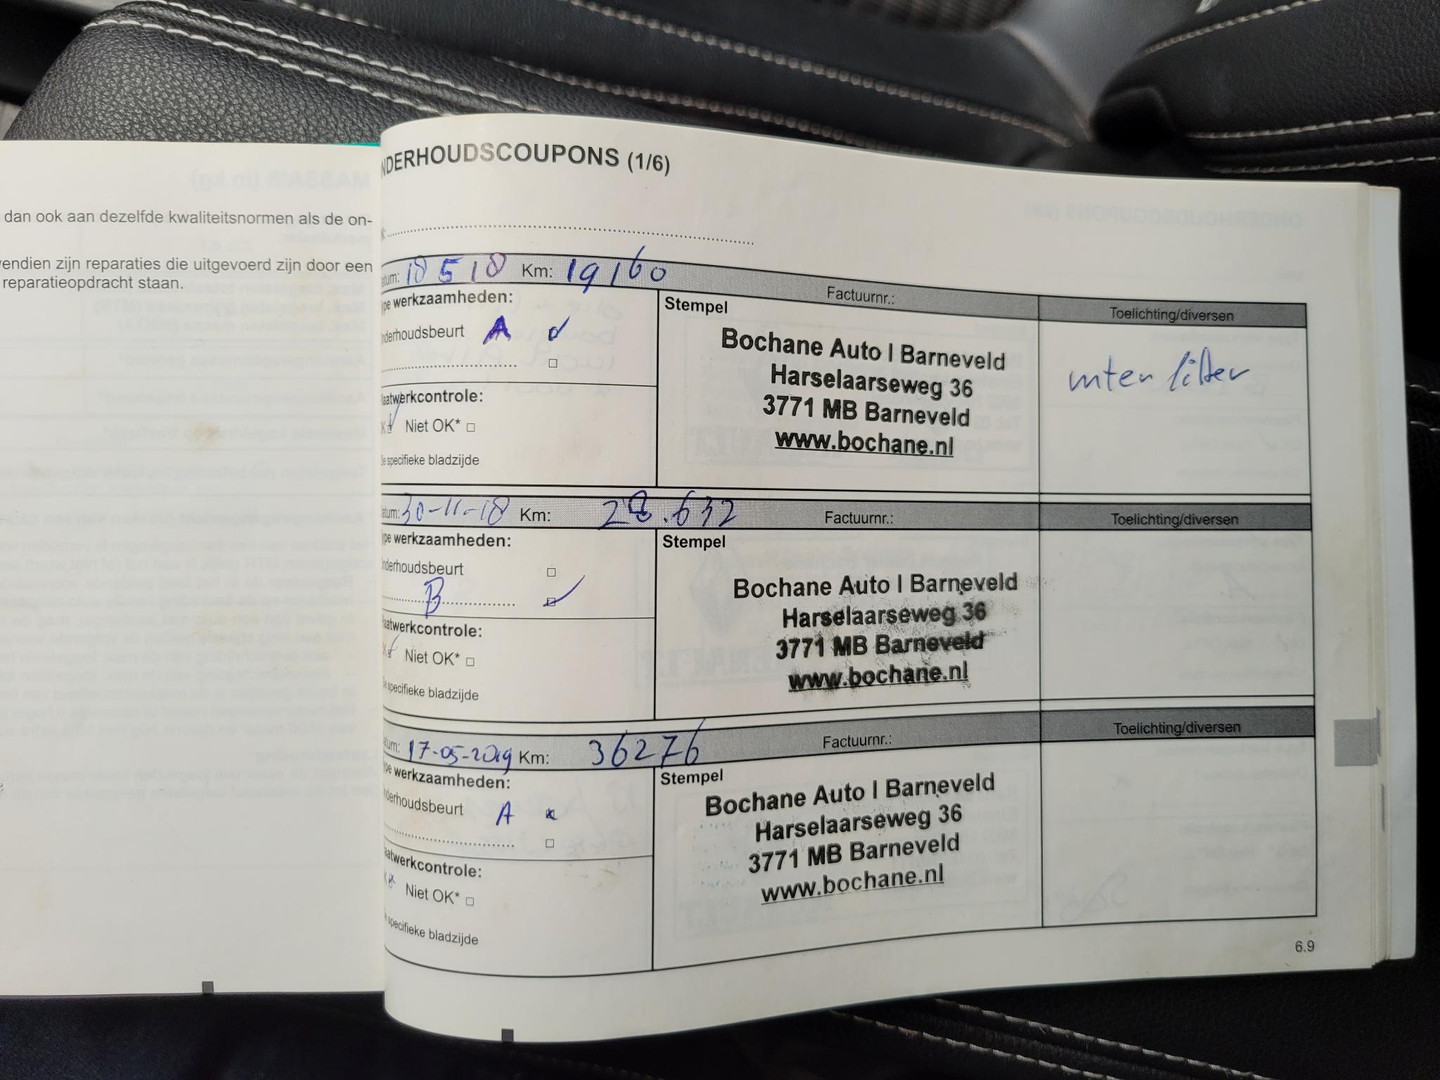 dan ook aan dezelfde kwaliteitsnormen als de on-
endien zijn reparaties die uitgevoerd zijn door een
reparatieopdracht staan.
NDERHOUDSCOUPONS (1/6)
tum: 18 5 18 Km: 19160 Factuurnr.: Toelichting/diversen
pe werkzaamheden: Stempel
nderhoudsbeurt A
Bochane Auto | Barneveld
Harselaarseweg 36
3771 MB Barneveld
www.bochane.nl
aatwerkcontrole:
Niet OK*
e specifieke bladzijde
tum: 30-11-18 Km: 28.632 Factuurnr.: Toelichting/diversen
pe werkzaamheden: Stempel
nderhoudsbeurt
B
Bochane Auto | Barneveld
Harselaarseweg 36
3771 MB Barneveld
www.bochane.nl
aatwerkcontrole:
Niet OK*
specifieke bladzijde
tum: 17-05-2019 Km: 36276 Factuurnr.: Toelichting/diversen
pe werkzaamheden: Stempel
nderhoudsbeurt A
Bochane Auto | Barneveld
Harselaarseweg 36
3771 MB Barneveld
www.bochane.nl
aatwerkcontrole:
Niet OK*
specifieke bladzijde
6.9